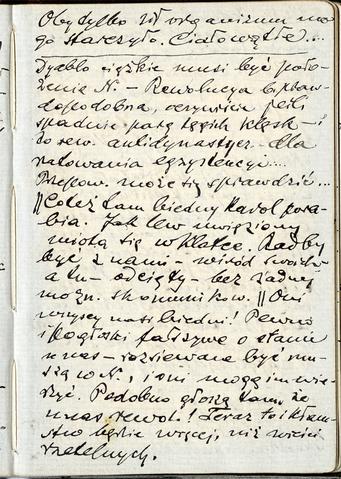 Oby tylko sił organizmu mo
go starczyło. Ciało wątłe...
Dyablo ciężkie musi być poło-
żenie N. – Rewolucya b. praw-
dopodobna, oczywiście jeśli
spadnie parę tęgich klęsk – i
to rew. antidynastycz. dla
ratowania egzystencyi...
Przepow. może się sprawdzić...
|| Coteż tam biedny Karol pora-
bia. Jak lew uwięziony
miota się w klatce. Radby
być z nami – wśród swoich
a tu – odcięty – bez żadnej
możn. skomunikow. || Oni
wszyscy nasi biedni! Pewno
i pogłoski fałszywe o stanie
u nas – rozsiewane być mu-
szą w N., i oni mogą im wie-
rzyć. Podobno głoszą tam, że
u nas rewol.! Teraz to i kłam-
stw będzie więcej, niż wieści
rzetelnych.